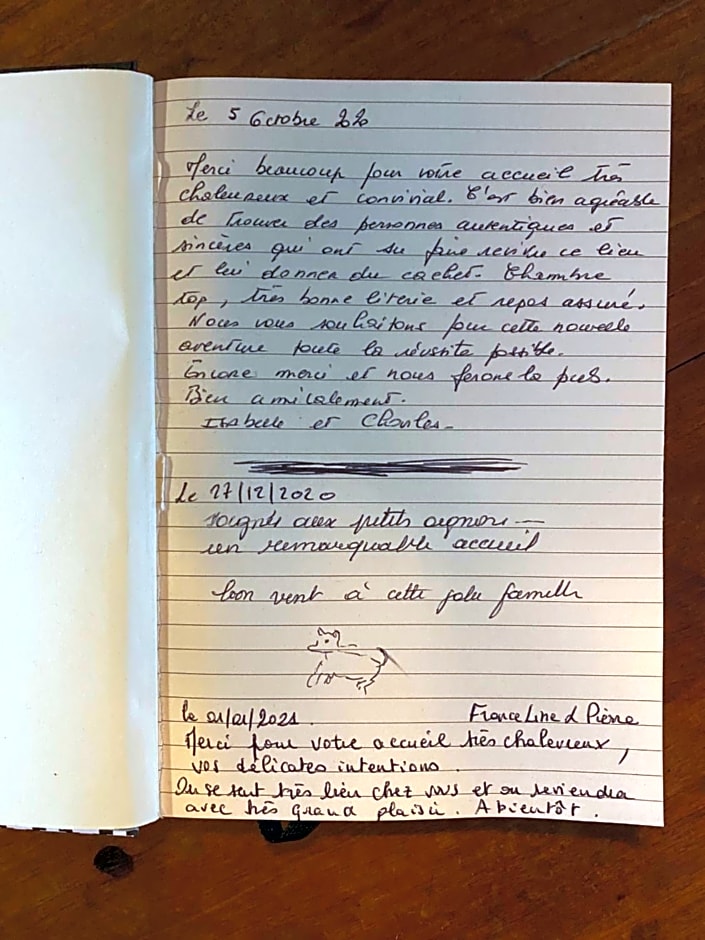 Le 5 Octobre 2020
Merci beaucoup pour votre accueil très
chaleureux et convivial. C'est bien agréable
de trouver des personnes autentiques et
sincères qui ont su faire revivre ce lieu
et lui donner du cachet. Chambre
top, très bonne literie et repos assuré.
Nous vous souhaitons pour cette nouvelle
aventure toute la réussite possible.
Encore merci et nous ferons la pub.
Bien amicalement.
Isabelle et Charles
Le 27/12/2020
soignés aux petits oignons —
un remarquable accueil
bon vent à cette jolie famille
le 01/01/2021. Franceline & Pierre
Merci pour votre accueil très chaleureux,
vos délicates intentions.
On se sent très bien chez vous et on reviendra
avec très grand plaisir. A bientôt.